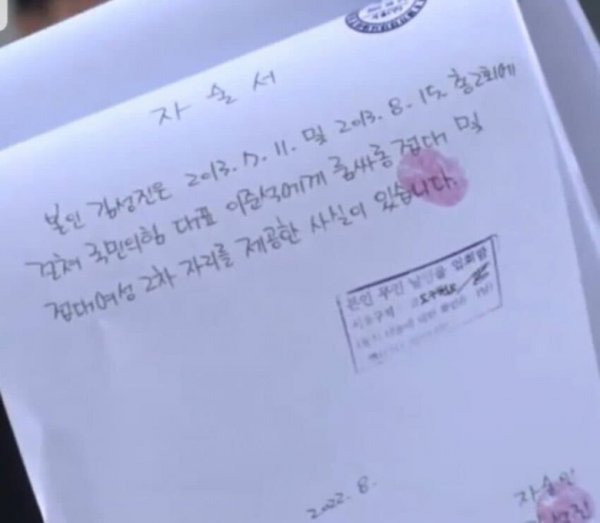 자술서
본인 김성진은 2013.7.11. 및 2013.8.15. 총2회에
걸쳐 국민의힘 대표 이준석에게 룸싸롱 접대 및
접대여성 2차 자리를 제공한 사실이 있습니다.
본인 무인
2022.8.